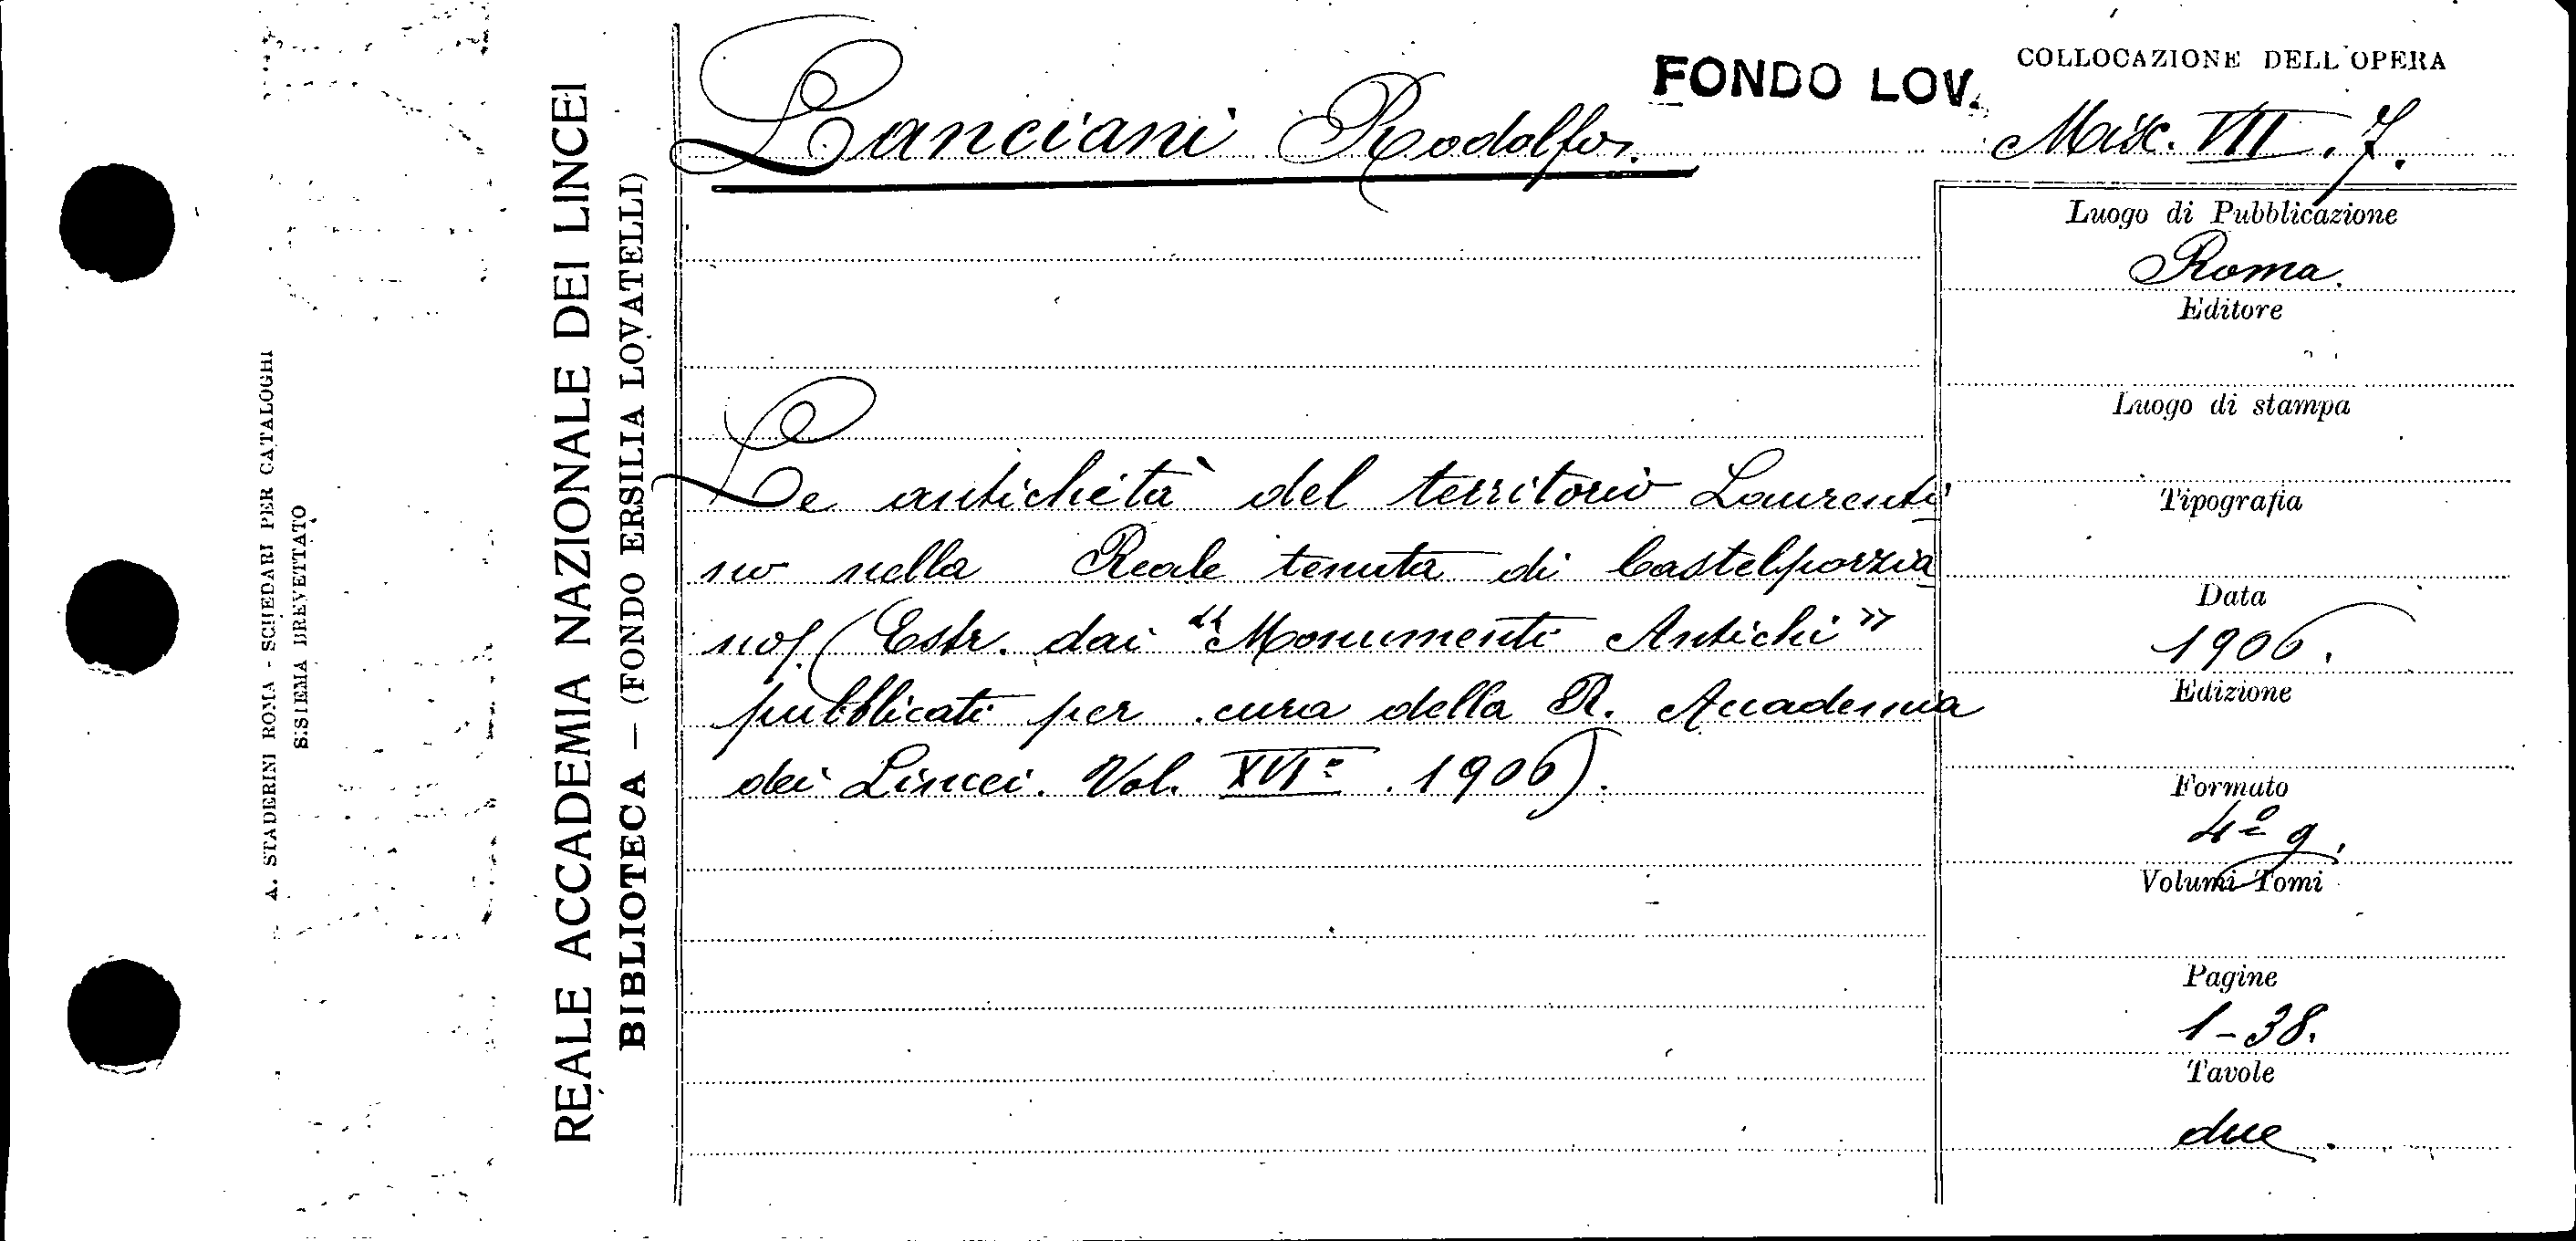 A. STADERINI ROMA - SCHEDARI PER CATALOGHI
SISTEMA BREVETTATO
REALE ACCADEMIA NAZIONALE DEI LINCEI
BIBLIOTECA — (FONDO ERSILIA LOVATELLI)
Lanciani Rodolfo.
FONDO LOV.
COLLOCAZIONE DELL'OPERA
Misc. VII. 7.
Le antichità del territorio Laurenti
no nella Reale tenuta di Castelporzia
no/. (Estr. dai "Monumenti Antichi"
pubblicati per cura della R. Accademia
dei Lincei. Vol. XVIº. 1906).
Luogo di Pubblicazione
Roma.
Editore
Luogo di stampa
Tipografia
Data
1906.
Edizione
Formato
4º g.
Volumi Tomi
Pagine
1-38.
Tavole
due.